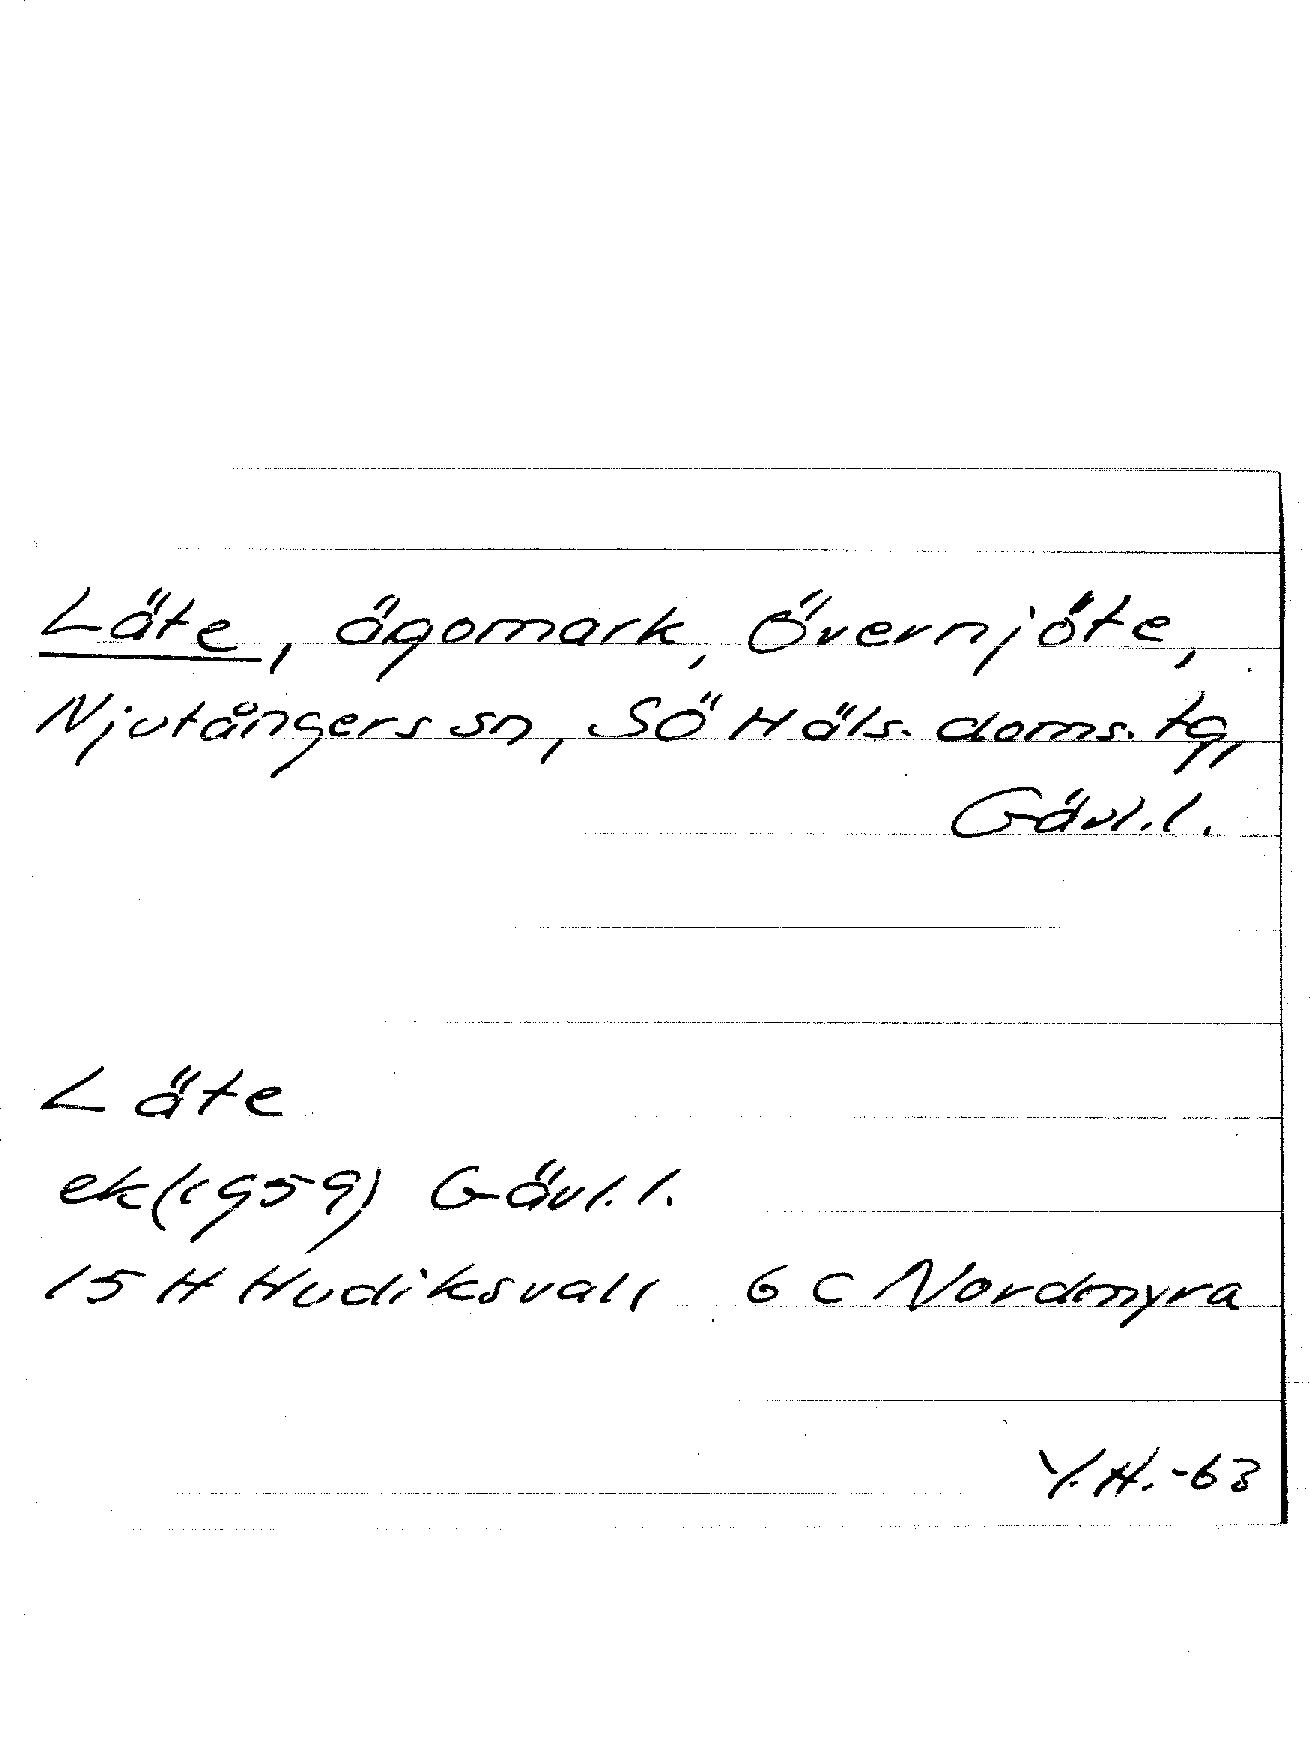 Läte, ägomark, Övernjöte,
Njutångers sn, SÖ Häls. doms. tg,
Gävl.l.
Läte
ek(1959) Gävl.l.
15 H Hudiksvall 6 C Nordmyra
Y.H.-63